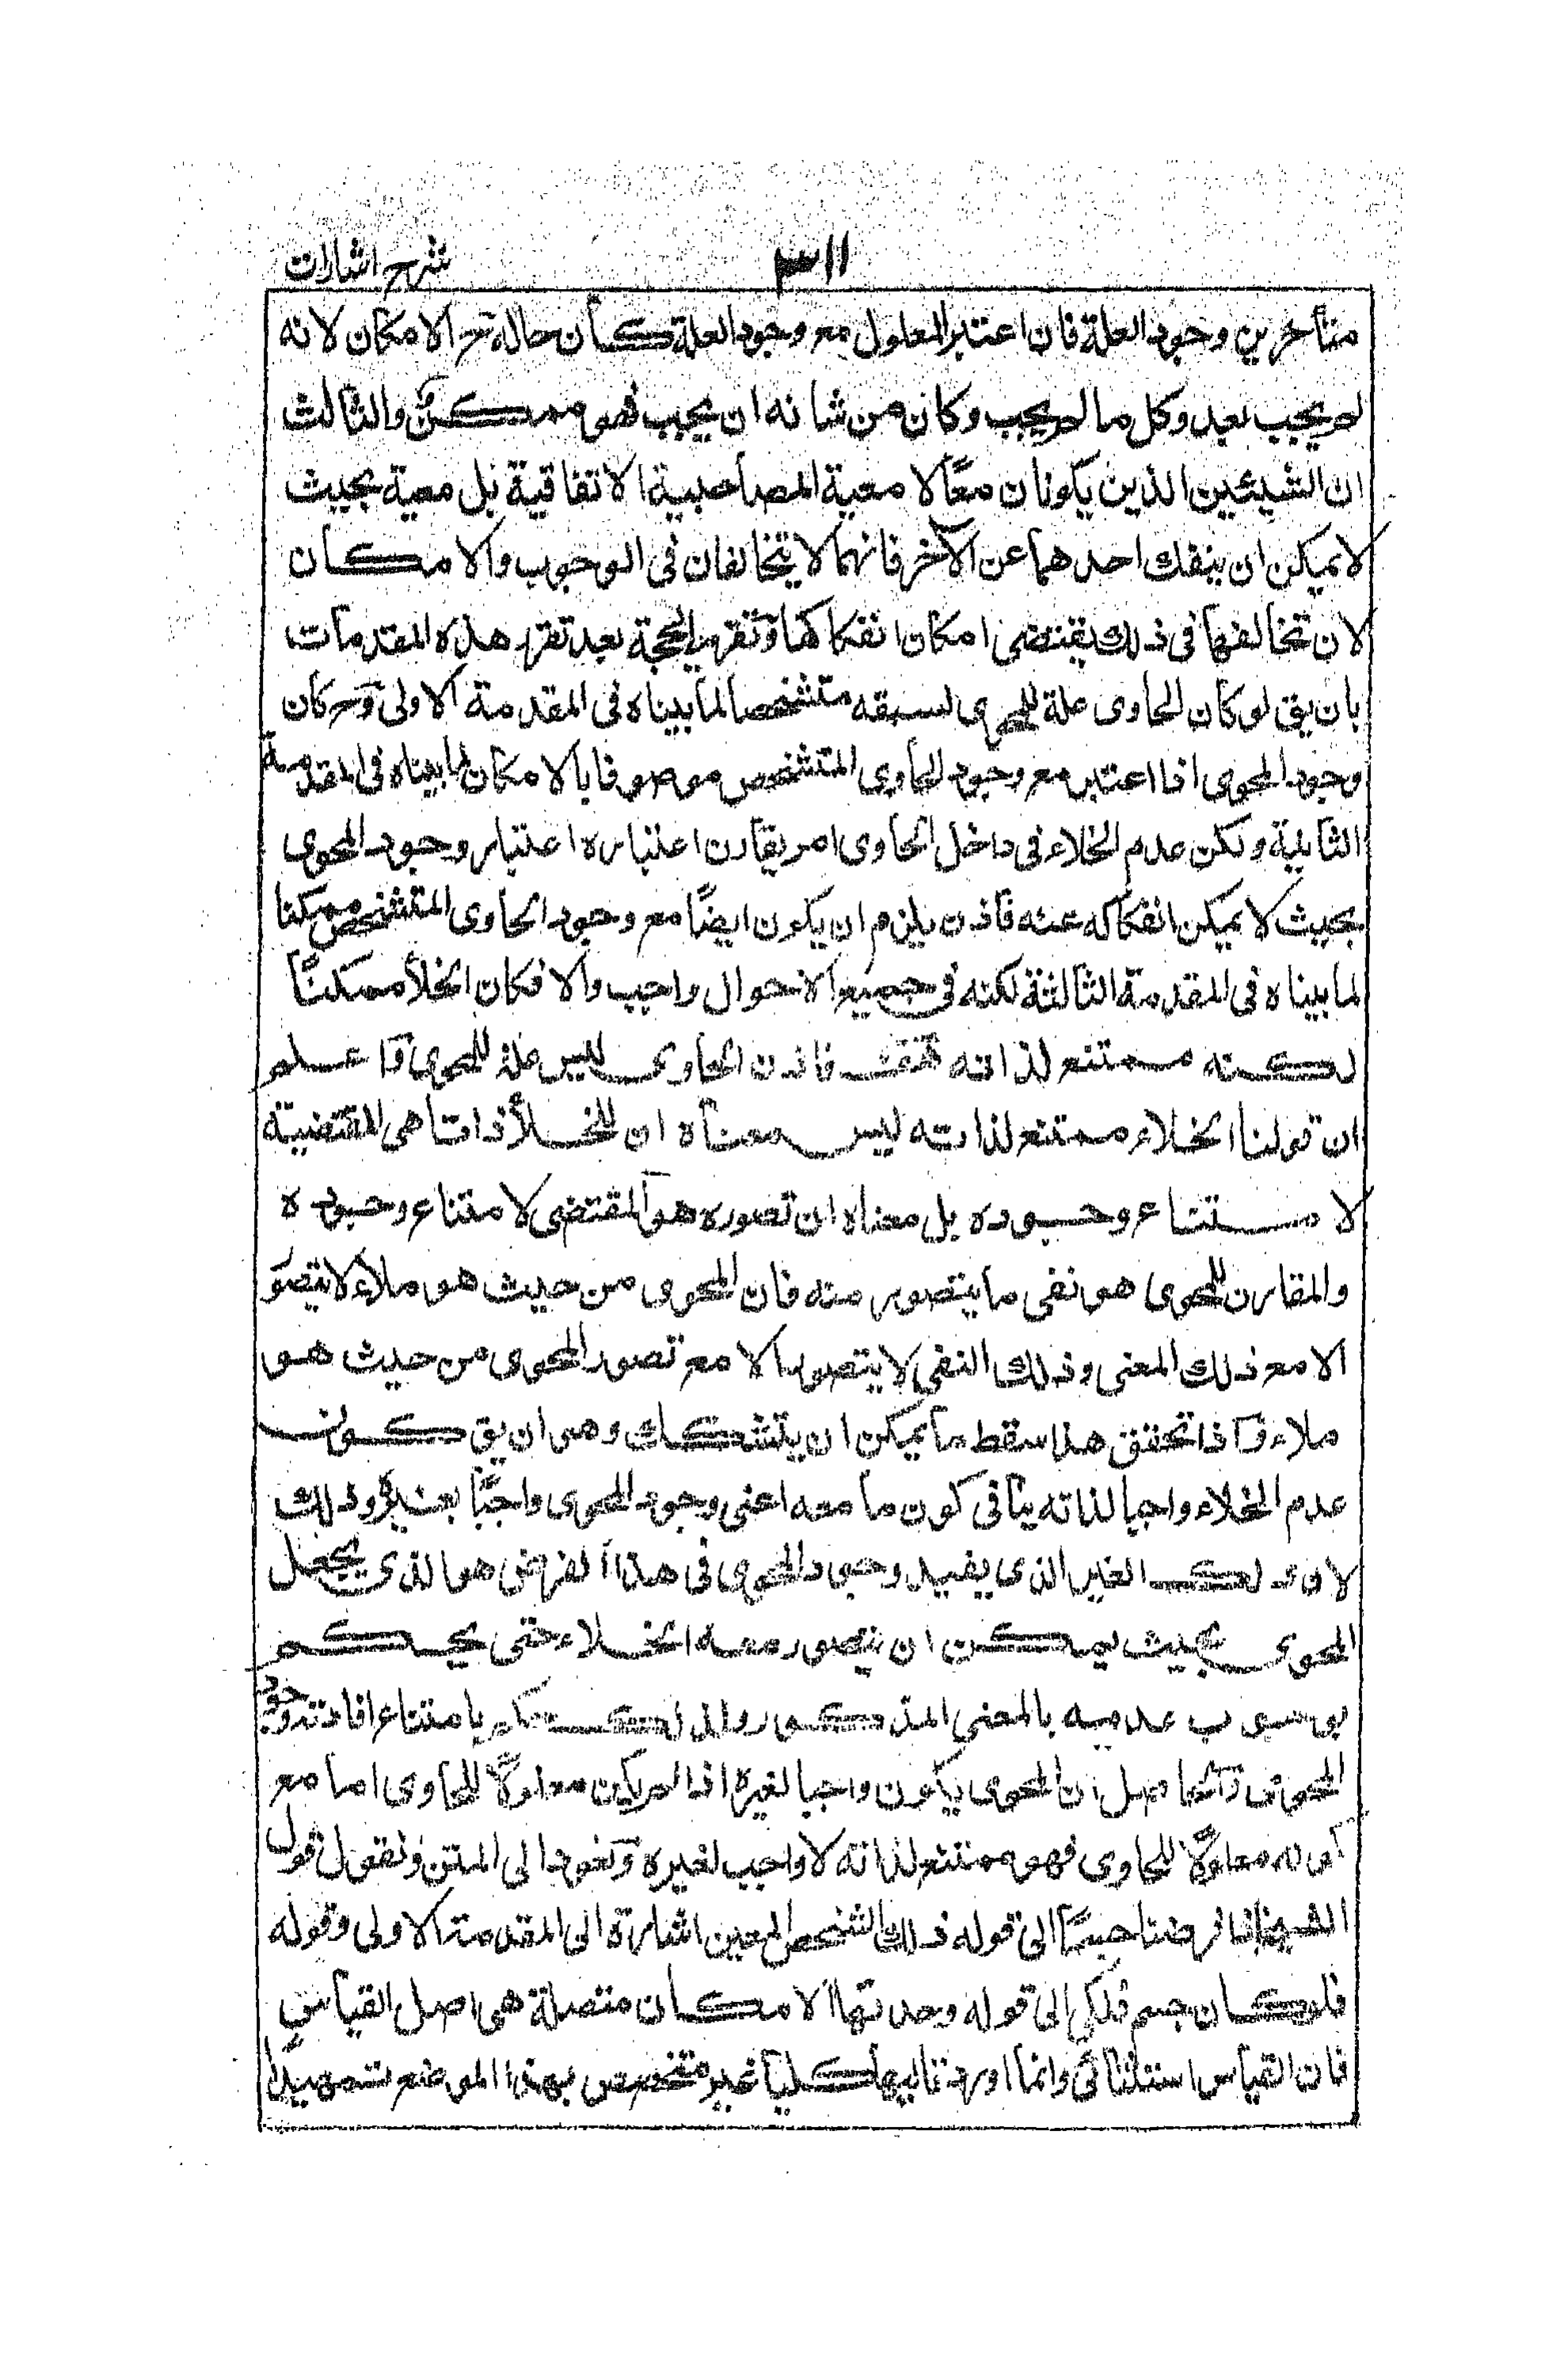 ٣١١
شرح اشارات
متأخرين وجود العلة فان اعتبر المعلول مع وجود العلة كان حاله ح الامكان لانه
لم يجب بعد وكل ما لم يجب وكان من شانه ان يجب فهو ممكن والثالث
ان الشيئين الذين يكونان معًا لا معية المصاحبية الاتفاقية بل معية بحيث
لا يمكن ان ينفك احدهما عن الآخر فانهما لا يتخالفان فى الوجوب والامكان
لان تخالفهما فى ذلك يقتضى امكان انفكاكهما وتقرير الحجة بعد تقرر هذه المقدمات
بان يق لو كان الحاوى علة للمحوى لسبقه متشخصا لما بيناه فى المقدمة الاولى وح كان
وجود المحوى اذا اعتبر مع وجود الحاوى المتشخص موصوفا بالامكان لما بيناه فى المقدمة
الثانية ولكن عدم الخلاء فى داخل الحاوى امر يقارن اعتباره اعتبار وجود المحوى
بحيث لا يمكن انفكاكه عنه فاذن يلزم ان يكون ايضًا مع وجود الحاوى المتشخص ممكنا
لما بيناه فى المقدمة الثالثة لكنه فى جميع الاحوال واجب والا فكان الخلأ ممكنًا
لكنه ممتنع لذاته هف فاذن الحاوى ليس علة للمحوى واعلم
ان قولنا الخلاء ممتنع لذاته ليس معناه ان للخلأ ذاتا هى المقتضية
لامتناع وجوده بل معناه ان تصوره هو المقتضى لامتناع وجوده
والمقارن للمحوى هو نفى ما يتصور منه فان المحوى من حيث هو ملاء لا يتصور
الا مع ذلك المعنى وذلك النفى لا يتصور الا مع تصور المحوى من حيث هو
ملاء واذا تحقق هذا سقط ما يمكن ان يتشكك وهو ان يق كون
عدم الخلاء واجبا لذاته ينافى كون ما معه اعنى وجود المحوى واجبًا بغيره وذلك
لان ذلك الغير الذى يفيد وجود المحوى فى هذا الفرض هو الذى يجعل
المحوى بحيث يمكن ان يتصور معه الخلاء حتى يحكم
بوجوب عدمه بالمعنى المذكور ولذلك حكم بامتناع افادته وجود
المحوى والحاصل ان المحوى يكون واجبا لغيره اذا لم يكن معلولًا للحاوى اما مع
كونه معلولًا للحاوى فهو ممتنع لذاته لا واجب لغيره ونعود الى المتن ونقول قول
الشيخ اذا فرضنا جسمًا الى قوله ذلك الشخص المعين اشارة الى المقدمة الاولى وقوله
فلو كان جسم فلكى الى قوله وجدتها الامكان متصلة هى اصل القياس
فان القياس استثنائى وانما اورد تاليها كليًا غير متخصص بهذا الموضع تمهيدا